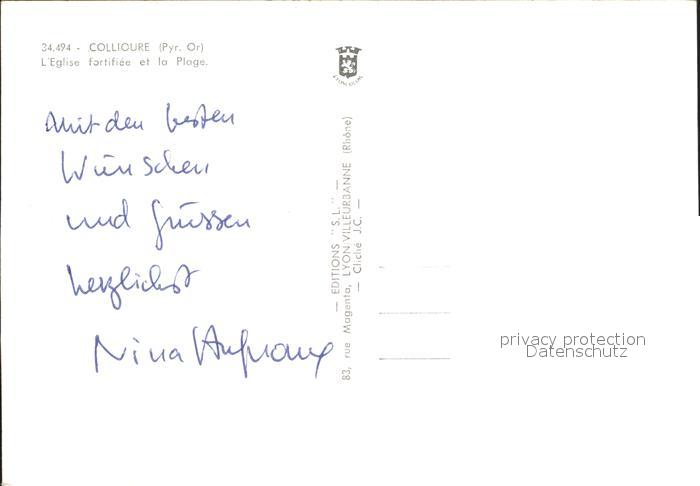 34.494 - COLLIOURE (Pyr. Or)
L'Eglise fortifiée et la Plage.
mit den besten
Wünschen
und Grüssen
herzlichst
Nina
— EDITIONS "S.L." —
83, rue Magenta, LYON-VILLEURBANNE (Rhône)
— Cliché J.C. —
privacy protection
Datenschutz